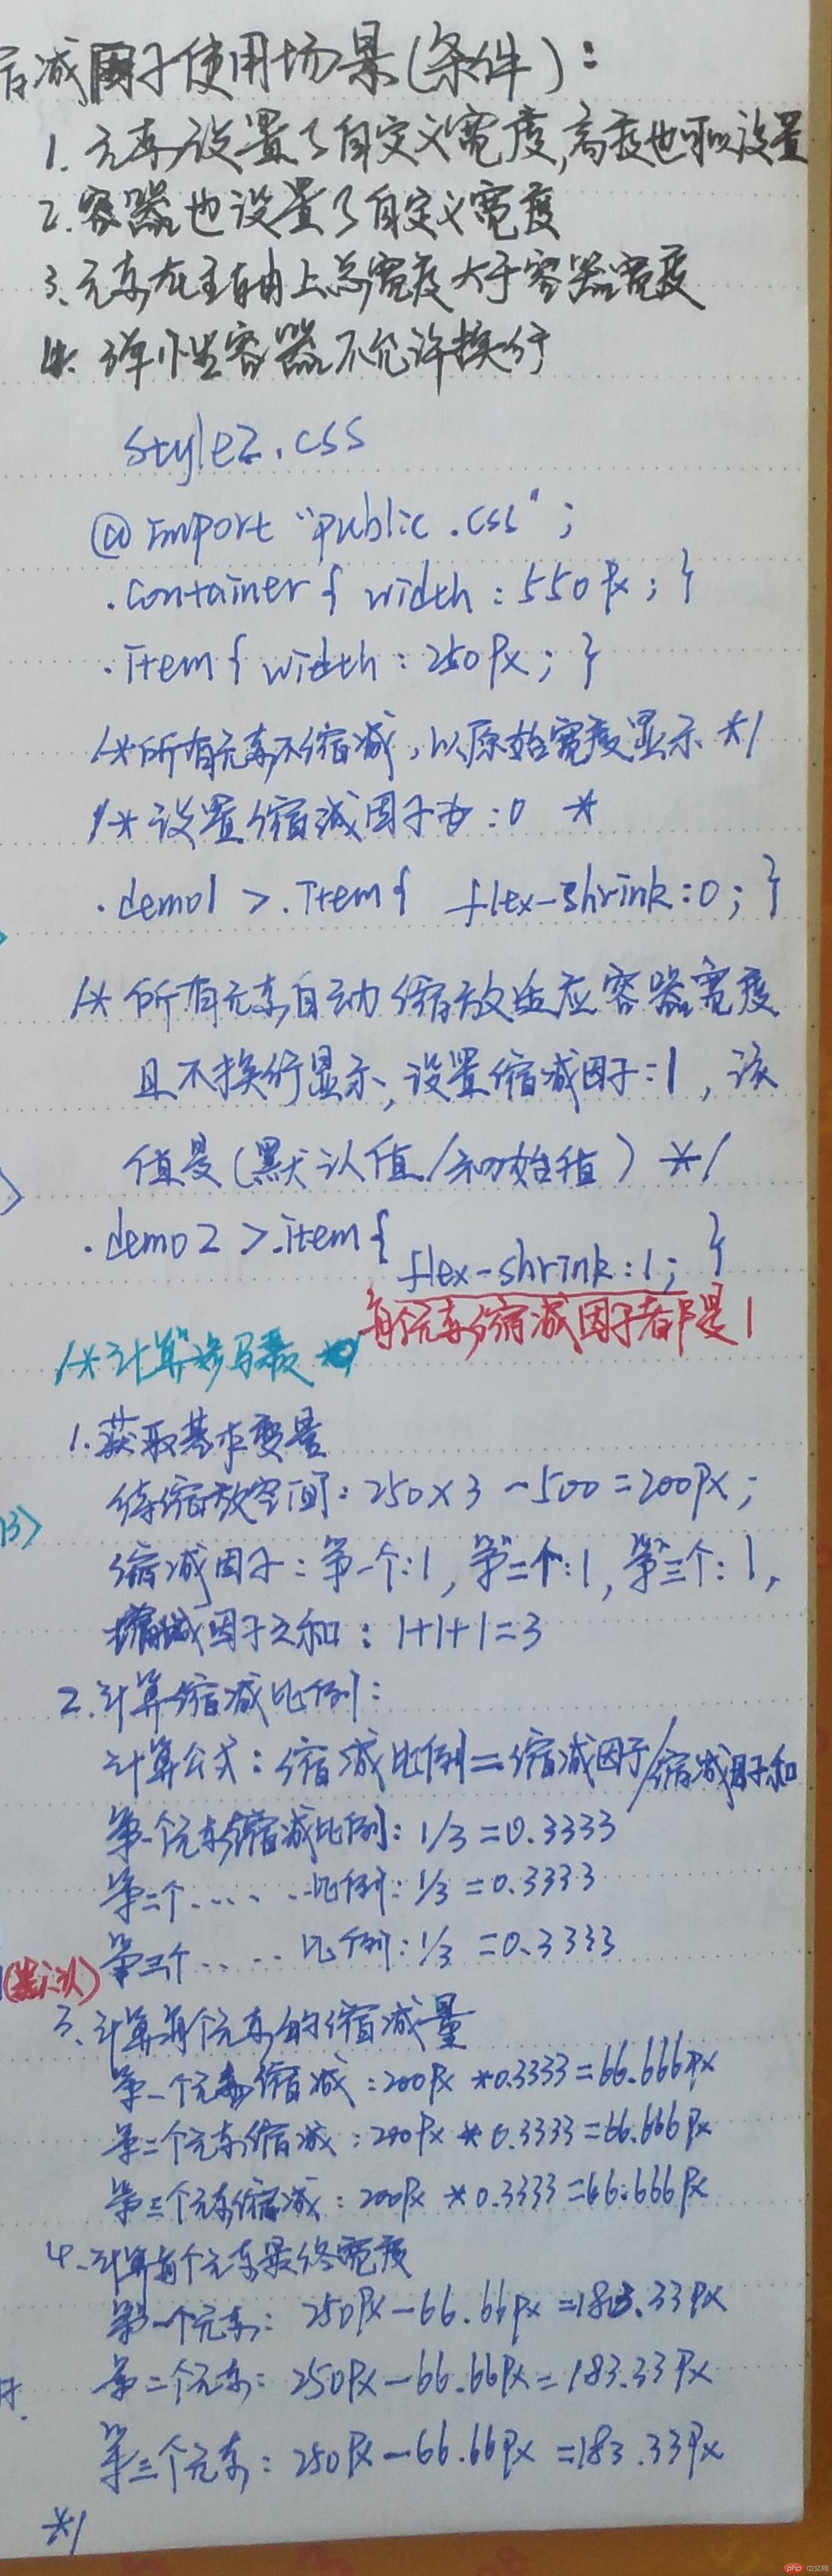 缩减因子使用场景(条件):
1.元素设置了自定义宽度,高度也可以设置
2.容器也设置了自定义宽度
3、元素在主轴上总宽度大于容器宽度
4. 弹性容器不允许换行
style2.css
@import "public.css";
.container{ width:550px; }
.item{ width:250px; }
/*所有元素不缩减,以原始宽度显示*/
/*设置缩减因子为:0 *
.demo1 >.item{ flex-shrink:0; }
/* 所有元素自动缩放适应容器宽度
且不换行显示,设置缩减因子:1,该
值是(默认值/初始值) */
.demo2 >.item{ flex-shrink:1; }
每个元素缩减因子都是1
/*计算步骤
1.获取基本变量
待缩放空间:250×3-500=200px;
缩减因子:第一个:1,第二个:1,第三个:1,
缩减因子之和:1+1+1=3
2.计算缩减比例:
计算公式:缩减比例=缩减因子/缩减因子和
第一个元素缩减比例:1/3=0.3333
第二个......比例:1/3=0.3333
(默认)
第三个.....比例:1/3=0.3333
3、计算每个元素的缩减量
第一个元素缩减:200px*0.3333=66.666px
第二个元素缩减:200px*0.3333=66.666px
第三个元素缩减:200px*0.3333=66.666px
4.计算每个元素最终宽度
第一个元素:250px-66.66px=183.33px
第二个元素:250px-66.66px=183.33px
第三个元素:250px-66.66px=183.33px
*/
php 中文网